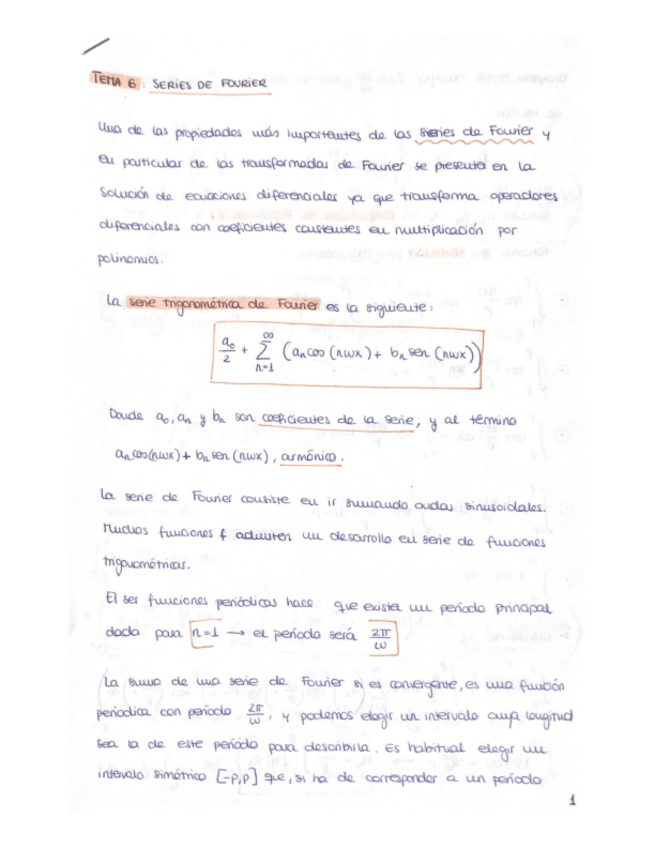 TEMA 6: SERIES DE FOURIER
Una de las propiedades más importantes de las series de Fourier y
en particular de las transformadas de Fourier se presenta en la
solución de ecuaciones diferenciales ya que transforma operadores
diferenciales con coeficientes constantes en multiplicación por
polinomios.
La serie trigonométrica de Fourier es la siguiente:
a₀/2 + ∑_{n=1}^{∞} (aₙ cos (nωx) + bₙ sen (nωx))
Donde a₀, aₙ y bₙ son coeficientes de la serie, y al término
aₙ cos(nωx) + bₙ sen (nωx), armónico.
La serie de Fourier consiste en ir sumando ondas sinusoidales.
Muchas funciones f admiten un desarrollo en serie de funciones
trigonométricas.
El ser funciones periódicas hace que exista un período principal
dada para n=1 → el período será 2π/ω
La suma de una serie de Fourier si es convergente, es una función
periódica con período 2π/ω, y podemos elegir un intervalo cuya longitud
sea la de este período para describirla. Es habitual elegir un
intervalo simétrico [-p,p] que, si ha de corresponder a un período
1